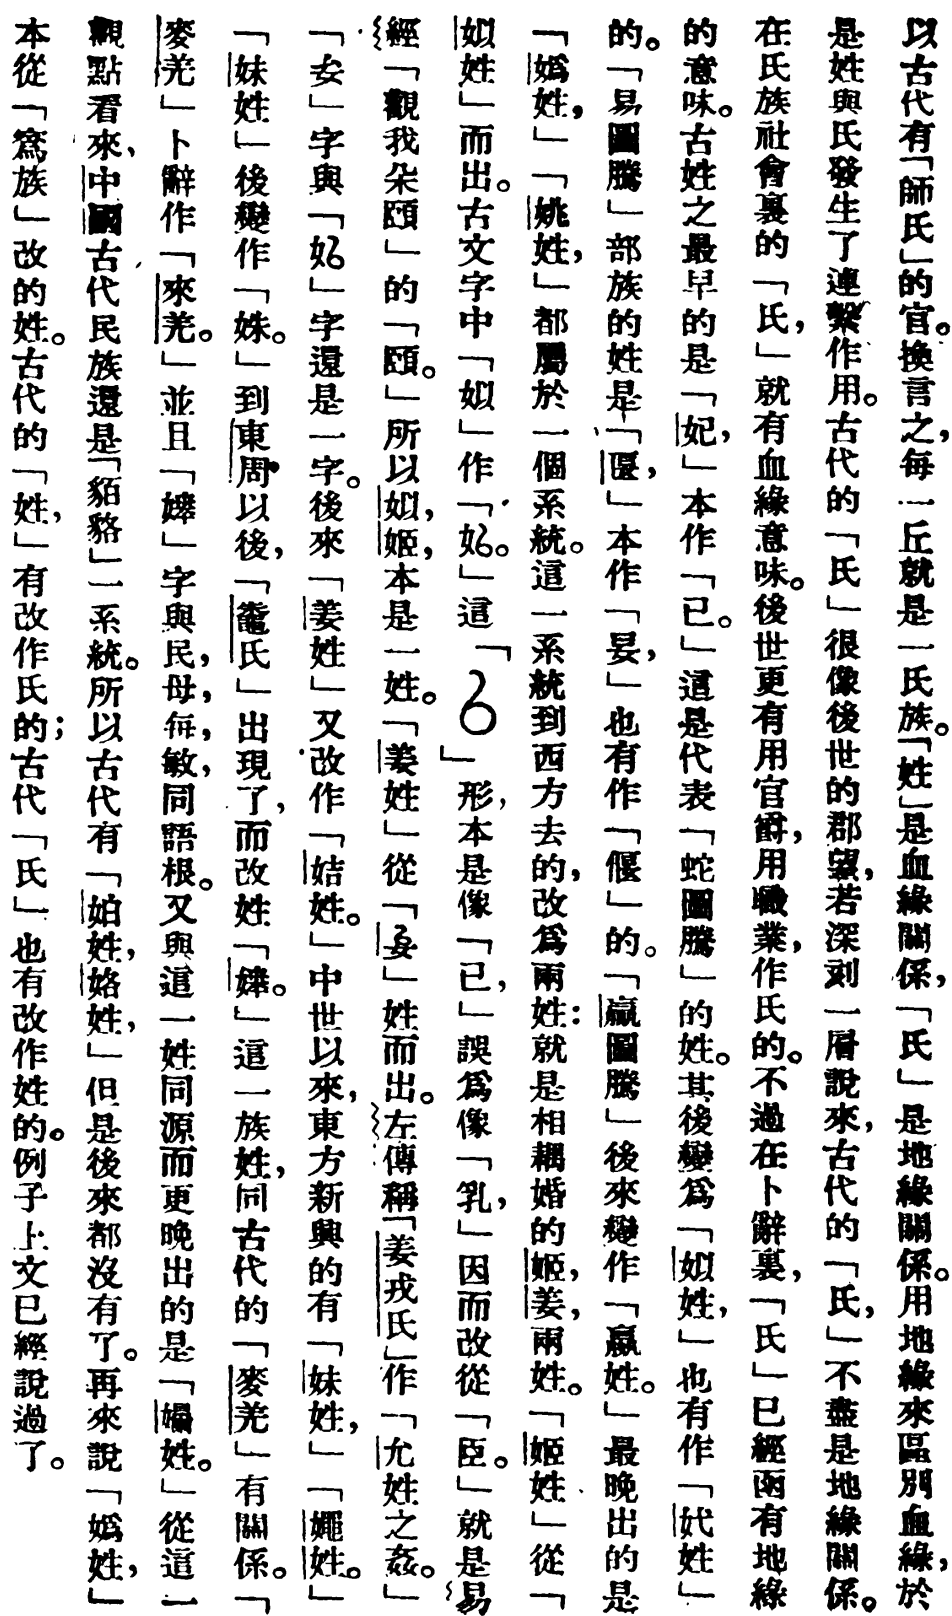 以古代有「師氏」的官。換言之，每一丘就是一氏族。「姓」是血緣關係，「氏」是地緣關係。用地緣來區別血緣，於
是姓與氏發生了連繫作用。古代的「氏」很像後世的郡望，若深刻一層說來，古代的「氏，」不盡是地緣關係。
在氏族社會裏的「氏，」就有血緣意味。後世更有用官爵，用職業，作氏的。不過在卜辭裏，「氏」已經函有地緣
的意味。古姓之最早的是「妃，」本作「已。」這是代表「蛇圖騰」的姓。其後變爲「姒姓，」也有作「㚤姓」
的。「易圖騰」部族的姓是「匽，」本作「妟，」也有作「偃」的。「嬴圖騰」後來變作「嬴姓。」最晚出的是
「嬀姓，」「姚姓，」都屬於一個系統。這一系統到西方去的，改爲兩姓：就是相耦婚的姬，姜，兩姓。「姬姓」從「
姒姓」而出。古文字中「姒」作「㚸。」這「𠃉」形，本是像「已，」誤爲像「乳，」因而改從「𦣞。」就是易
經「觀我朵頤」的「頤。」所以姒，姬，本是一姓。「姜姓」從「妟」姓而出。左傳稱「姜戎氏」作「允姓之姦。」
「妟」字與「㚸」字還是一字。後來「姜姓」又改作「姞姓。」中世以來，東方新興的有「妹姓，」「嬭姓。」
「妹姓」後變作「姝。」到東周以後，「鼄氏」出現了，而改姓「㜏。」這一族姓，同古代的「麥羌」有關係。「
麥羌」卜辭作「來羌。」並且「㜏」字與民，母，每，敏，同語根。又與這一姓同源而更晚出的是「嬶姓。」從這一
觀點看來，中國古代民族還是「貊貉」一系統。所以古代有「㚷姓，姳姓，」但是後來都沒有了。再來說「嬀姓，」
本從「寫族」改的姓。古代的「姓，」有改作氏的；古代「氏」也有改作姓的。例子上文已經說過了。